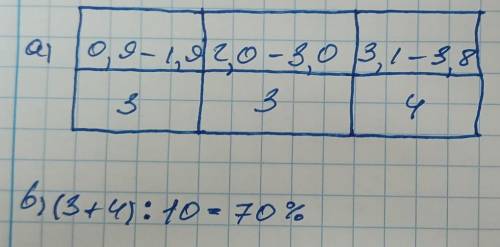 а) 0,9-1,9 2,0-3,0 3,1-3,8
3 3 4
в) (3+4):10=70%